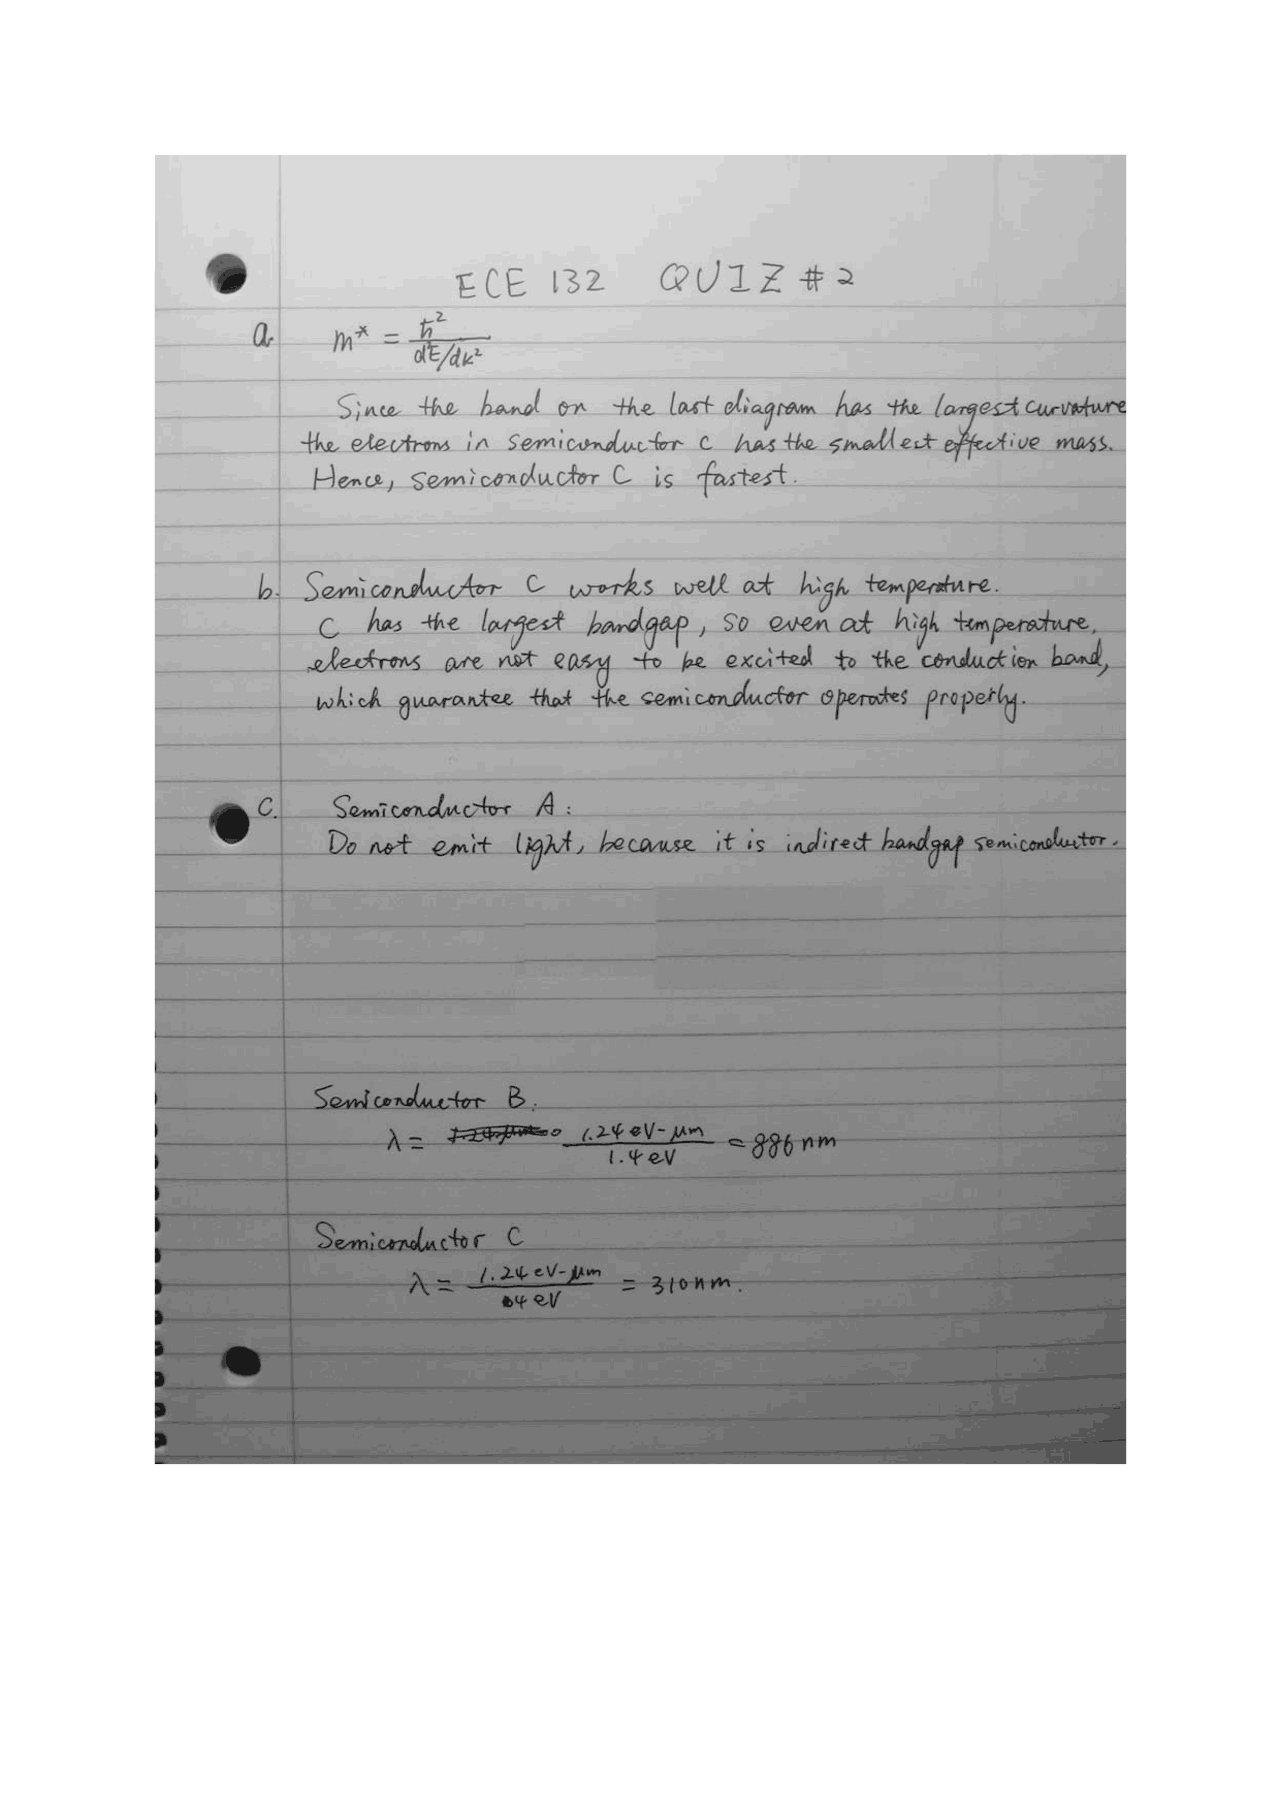 ECE 132 QUIZ #2
a. m* = ħ² / d²E/dk²
Since the band on the last diagram has the largest curvature
the electrons in semiconductor c has the smallest effective mass.
Hence, semiconductor C is fastest.
b. Semiconductor C works well at high temperature.
C has the largest bandgap, so even at high temperature,
electrons are not easy to be excited to the conduction band,
which guarantee that the semiconductor operates properly.
C. Semiconductor A:
Do not emit light, because it is indirect bandgap semiconductor.
Semiconductor B.
λ = 1.24 eV-μm / 1.4 eV = 886 nm
Semiconductor C
λ = 1.24 eV-μm / 4 eV = 310 nm.